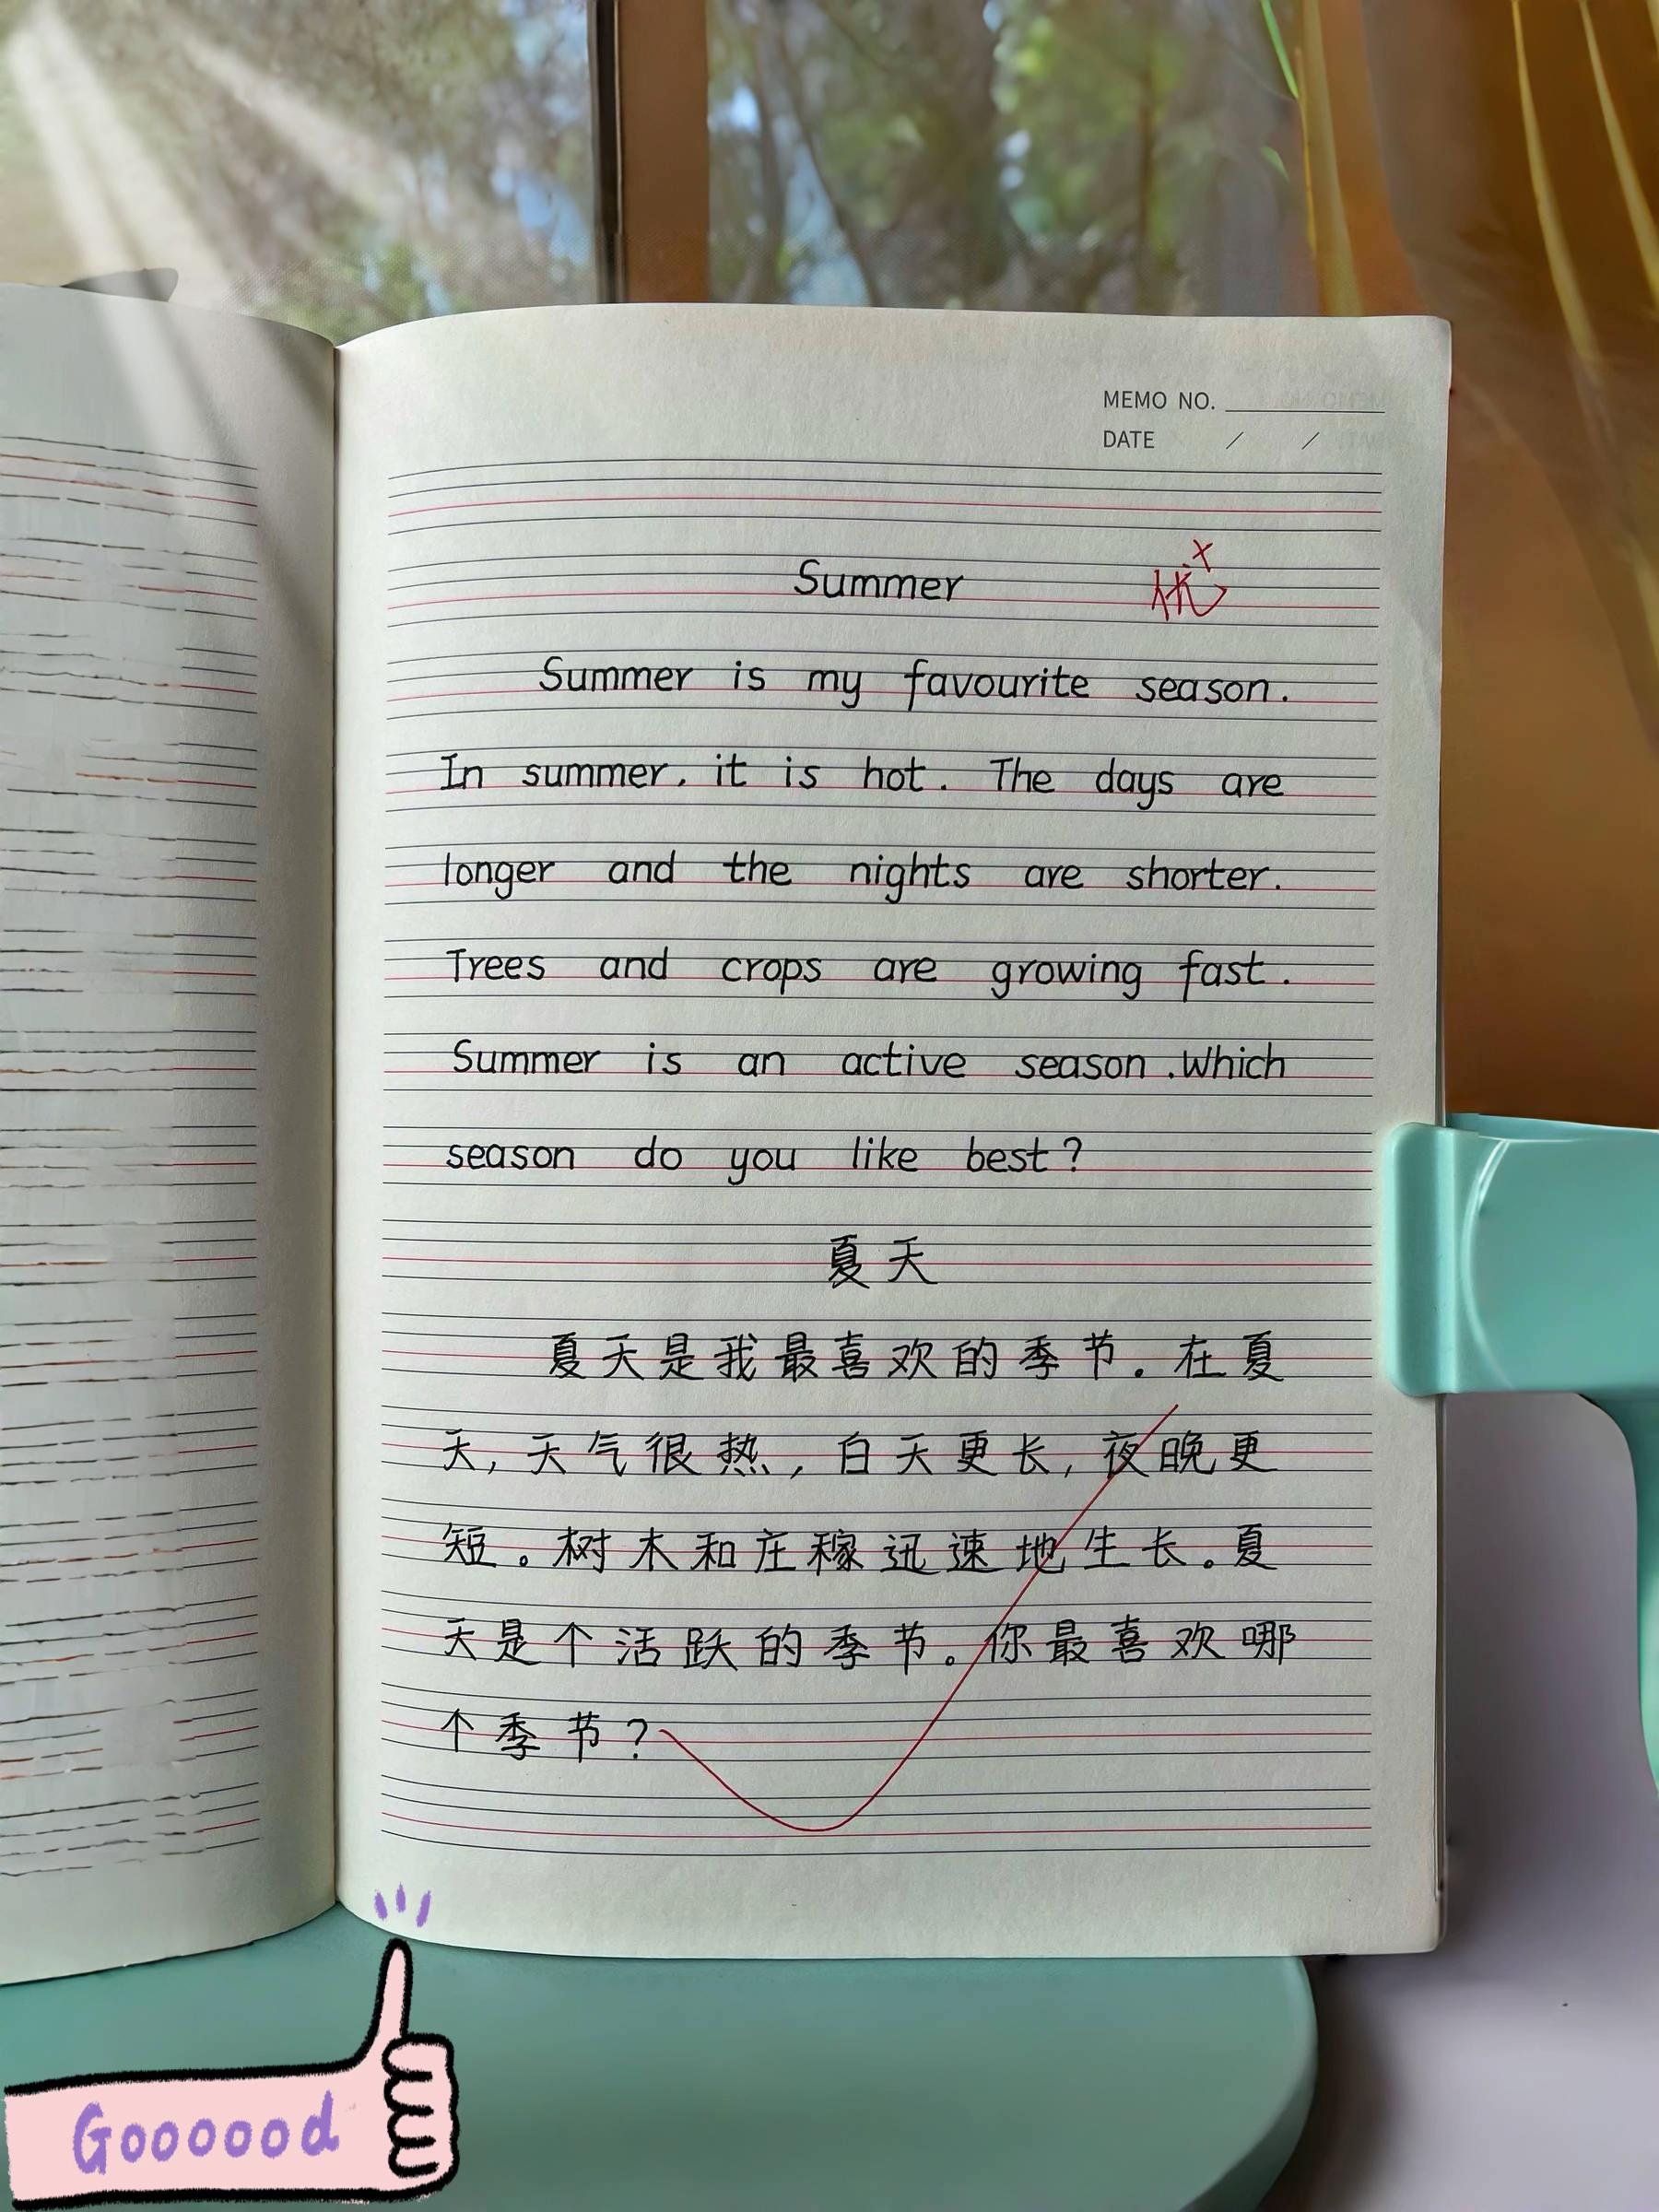 MEMO NO.
DATE / /
Summer 优+
Summer is my favourite season.
In summer, it is hot. The days are
longer and the nights are shorter.
Trees and crops are growing fast.
Summer is an active season. Which
season do you like best?
夏天
夏天是我最喜欢的季节。在夏
天,天气很热,白天更长,夜晚更
短。树木和庄稼迅速地生长。夏
天是个活跃的季节。你最喜欢哪
个季节?
Goooood